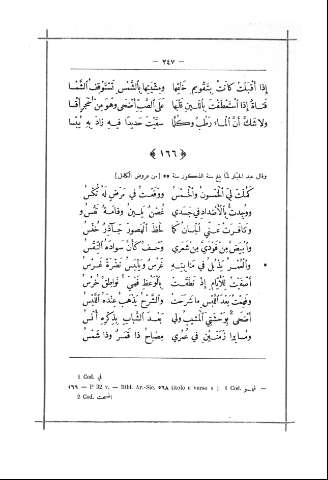 — ٢٤٧ —
إذا أقبلت كانت بتقويم خلقها ومشيتها بالشمس تستوقف الشمسا
فتاة إذا استعطفت باللين قلبها على الصب أضحى وهو من الحجر أقسا
ولا شك أن الماء رطب وكلما سقيت حديدا فيه زاد به يبسا
﴿ ١٦٦ ﴾
وقال عبد الجبار لما بلغ سنة المذكور سنة ٥٥ [من عروض الكامل]
كملت لي الخمسون والخمس ووقعت في مرض له نكس
ووجدت بالأضداد في جسدي غصن يلين وقامة تقسو
وتنافرت عني الحسان كما لحظ الهصور جآذر خنس
وابيض من فودي من شعري وحف كأن سواده النقس
والعمر يذبل في منابته غرس ويلبس نضرة غرس ٥
أصغيت للأيام إذ نطقت بالوعظ فهي نواطق خرس
وفهمت بعد اللبس ما شرحت والشرح يذهب عنده اللبس
أضحى بوحشتي المشيب ولي بعد الشباب بذكره أنس
ومسايرا زمنين في عمري مصباح ذا قمر وذا شمس
1 Cod. في
١٦٦ — P 32 v. — Bibl. Ar.-Sic. ٥٦٨ 1 Cod. —
2 Cod.